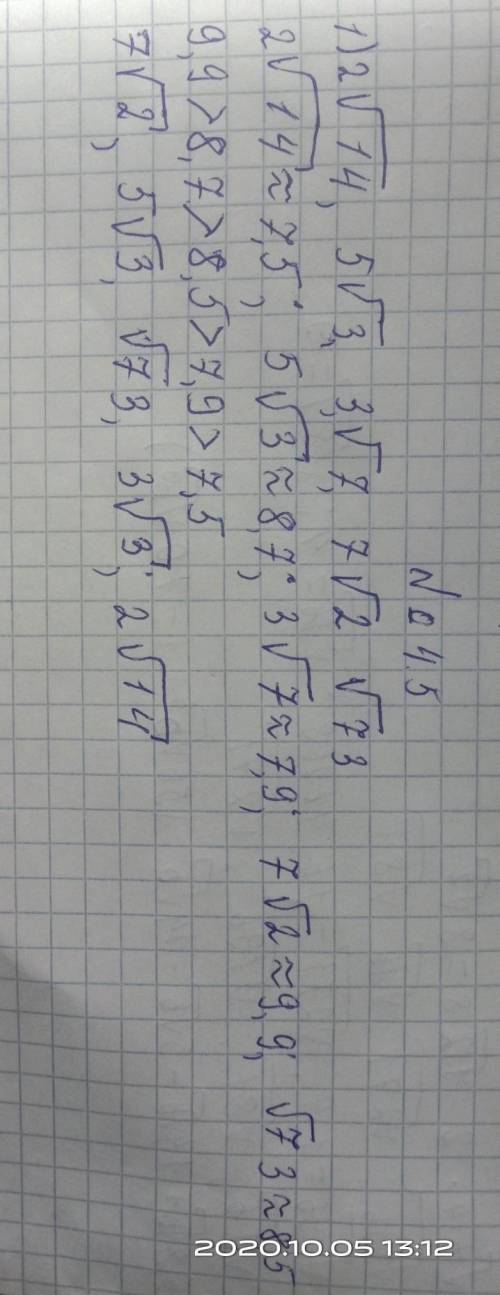 № 4.5
1) 2√14, 5√3, 3√7, 7√2 √73
2√14 ≈ 7,5; 5√3 ≈ 8,7; 3√7 ≈ 7,9; 7√2 ≈ 9,9; √73 ≈ 8,5
9,9 > 8,7 > 8,5 > 7,9 > 7,5
7√2, 5√3, √73, 3√3; 2√14
2020.10.05 13:12